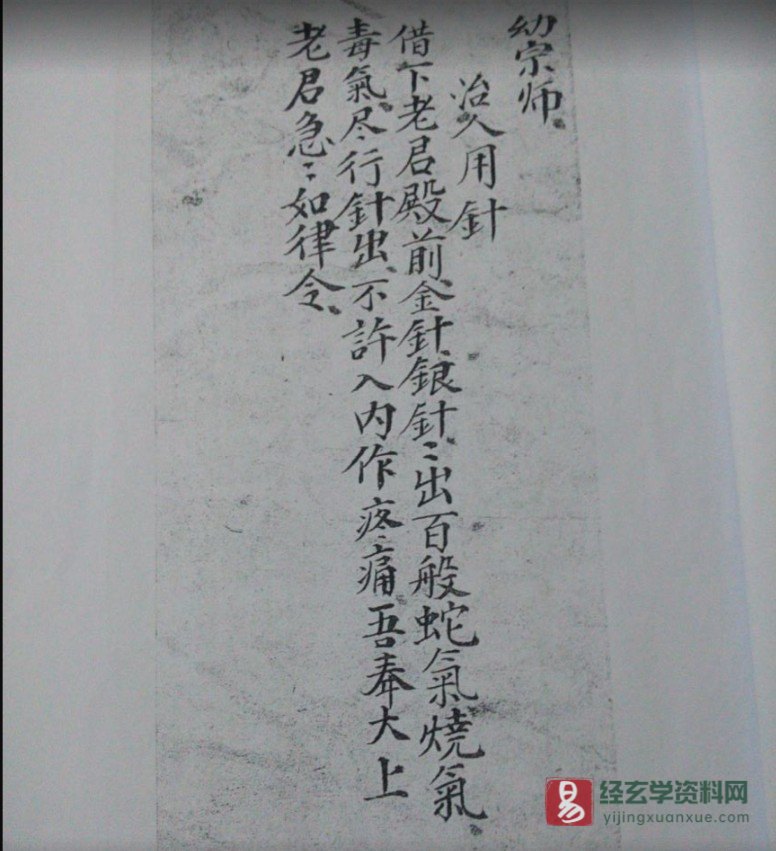 幼宗师
治人用針
借下老君殿前金針銀針〻出百般蛇氣燒氣
毒氣尽行針出不許入内作疼痛吾奉大上
老君急〻如律令
经玄学资料网
yijingxuanxue.com
易